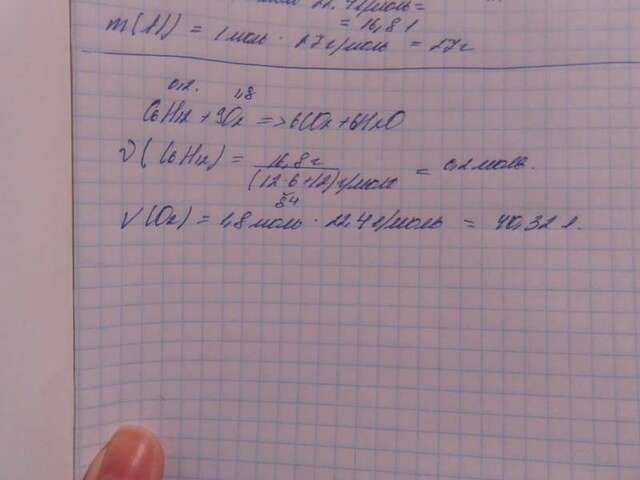 22,4 л/моль =
= 16,8 л
m(Al) = 1 моль · 27 г/моль = 27 г
0,2. 1,8
C6H12 + 9O2 => 6CO2 + 6H2O
ν(C6H12) = 16,8 г / (12·6+12) г/моль = 0,2 моль.
84
V(O2) = 1,8 моль · 22,4 л/моль = 40,32 л.